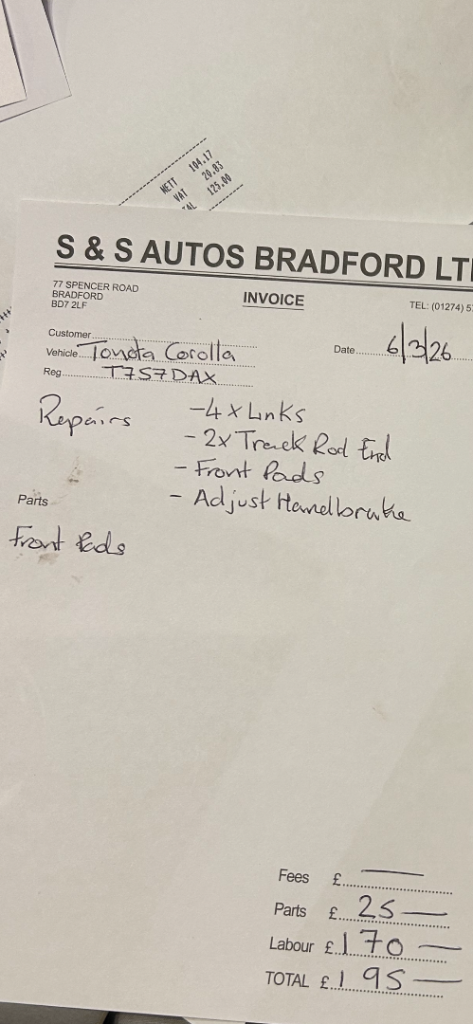 NETT 104.17
VAT 20.83
AL 125.00
S & S AUTOS BRADFORD LT
77 SPENCER ROAD
BRADFORD
BD7 2LF
INVOICE
TEL: (01274) 5
Customer
Vehicle Toyota Corolla
Date 6/3/26
Reg T757DAX
Repairs - 4 x Links
- 2x Track Rod End
- Front Pads
- Adjust Handbrake
Parts
Front Pads
Fees £ —
Parts £ 25 —
Labour £ 170 —
TOTAL £ 195 —